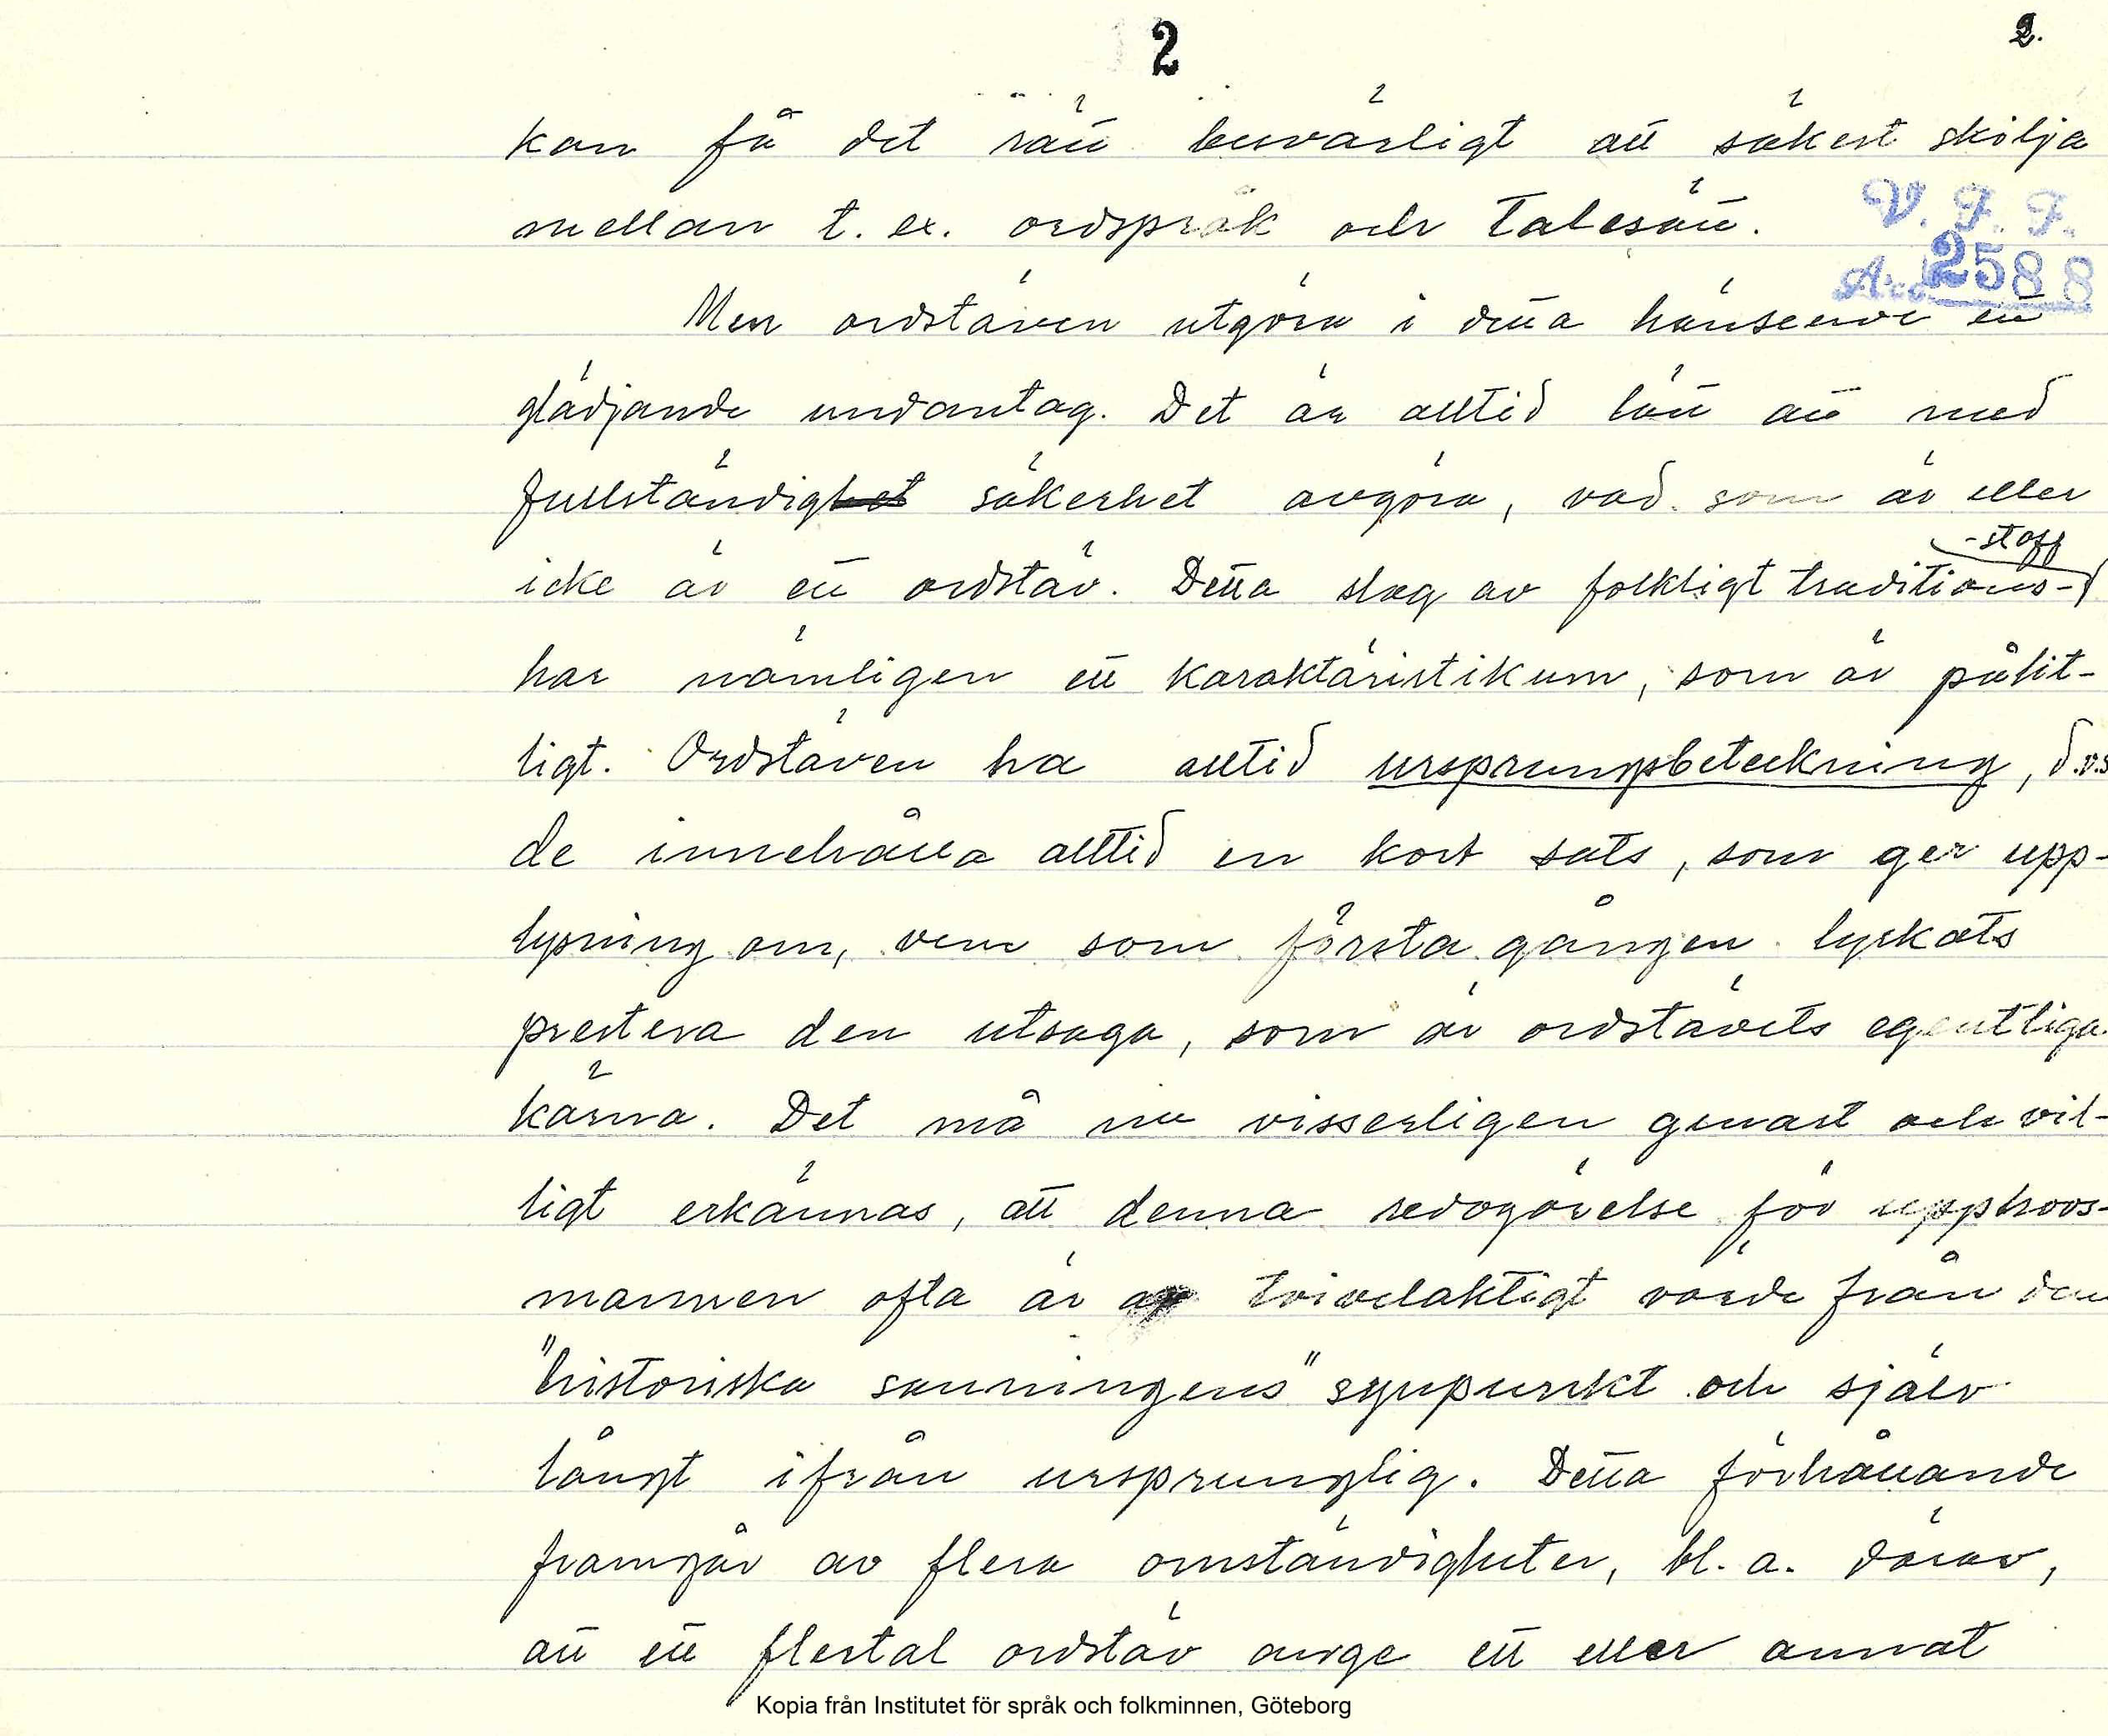 2
2.
kan få det rätt besvärligt att säkert skilja
mellan t. ex. ordspråk och talesätt.
V. F. F.
Acc 2588
Men ordstäven utgöra i detta hänseende ett
glädjande undantag. Det är alltid lätt att med
fullständighet säkerhet avgöra, vad som är eller
-stoff
icke är ett ordstäv. Detta slag av folkligt traditions-
har nämligen ett karaktäristikum, som är pålit-
ligt. Ordstäven ha alltid ursprungsbeteckning, d.v.s
de innehålla alltid en kort sats, som ger upp-
lysning om, vem som första gången lyckats
prestera den utsaga, som är ordstävets egentliga
kärna. Det må nu visserligen genast och vil-
ligt erkännas, att denna redogörelse för upphovs-
mannen ofta är av tvivelaktigt värde från den
"historiska sanningens" synpunkt och själv
långt ifrån ursprunglig. Detta förhållande
framgår av flera omständigheter, bl. a. därav,
att ett flertal ordstäv ange ett eller annat
Kopia från Institutet för språk och folkminnen, Göteborg